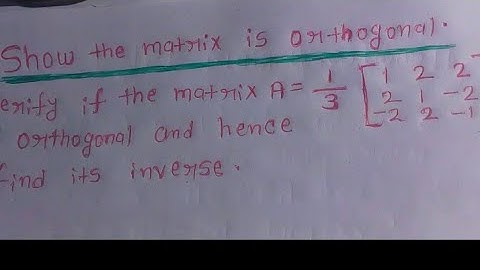 Show the matrix is orthogonal.
erify if the matrix A = 1/3 [1 2 2
2 1 -2
-2 2 -1
orthogonal and hence
find its inverse.